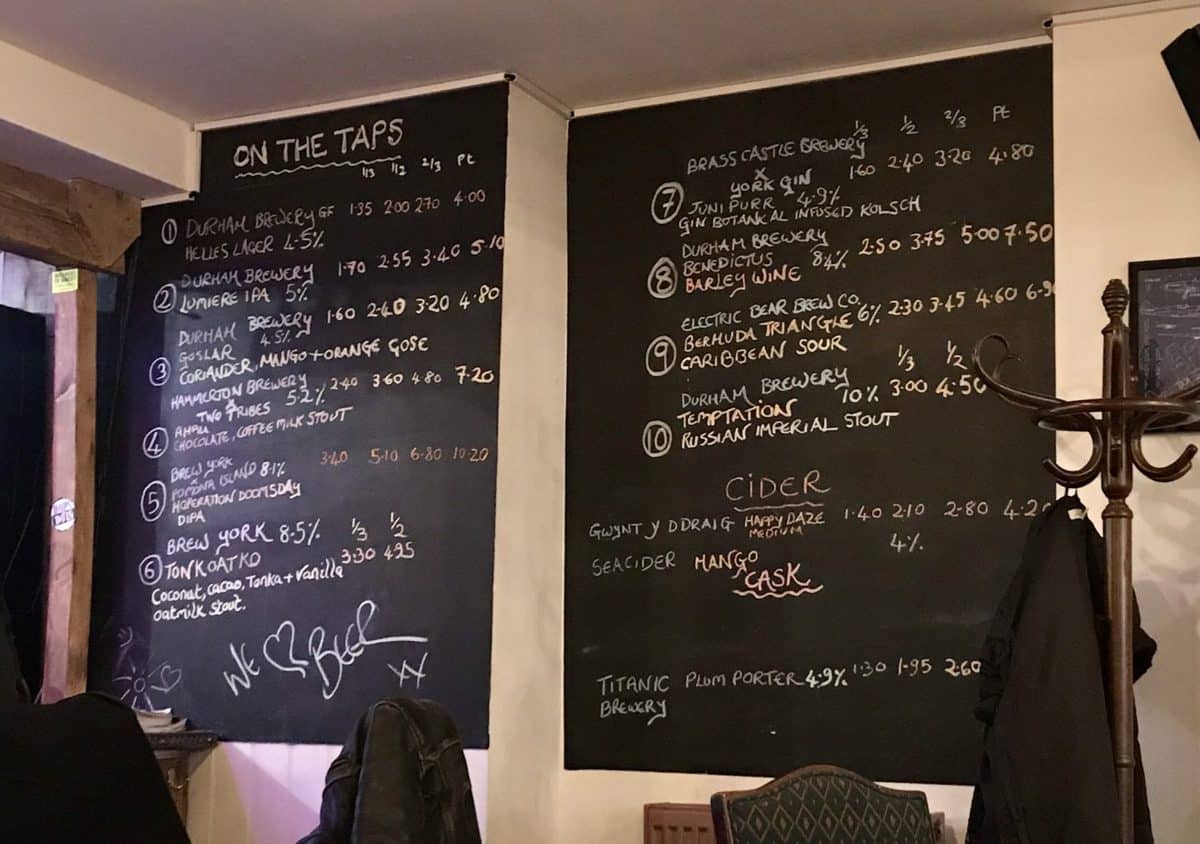 ON THE TAPS
1/3 1/2 2/3 Pt
1 DURHAM BREWERY GF 1.35 2.00 2.70 4.00
HELLES LAGER 4.5%
DURHAM BREWERY 1.70 2.55 3.40 5.10
2 LUMIERE IPA 5%
DURHAM BREWERY 1.60 2.40 3.20 4.80
GOSLAR 4.5%
3 CORIANDER, MANGO + ORANGE GOSE
HAMMERTON BREWERY 2.40 3.60 4.80 7.20
X
TWO TRIBES 5.2%
4 CHOCOLATE, COFFEE MILK STOUT
BREW YORK 3.40 5.10 6.80 10.20
X
POMONA ISLAND 8.1%
5 HOPERATION DOOMSDAY
DIPA
BREW YORK 8.5% 1/3 1/2
6 TONKOATKO 3.30 4.95
Coconut, cacao, Tonka + Vanilla
oatmilk stout.
WE ♡ BEER
XX
1/3 1/2 2/3 Pt
BRASS CASTLE BREWERY 1.60 2.40 3.20 4.80
X
YORK GIN
7 JUNIPURR 4.9%
GIN BOTANICAL INFUSED KOLSCH
DURHAM BREWERY 2.50 3.75 5.00 7.50
8 BENEDICTUS 8.4%
BARLEY WINE
ELECTRIC BEAR BREW CO. 6% 2.30 3.45 4.60 6.9
9 BERMUDA TRIANGLE
CARIBBEAN SOUR
1/3 1/2
DURHAM BREWERY 10% 3.00 4.50
TEMPTATION
10 RUSSIAN IMPERIAL STOUT
CIDER
GWYNT Y DDRAIG HAPPY DAZE 1.40 2.10 2.80 4.20
MEDIUM
4%
SEACIDER MANGO
CASK
TITANIC PLUM PORTER 4.9% 1.30 1.95 2.60
BREWERY